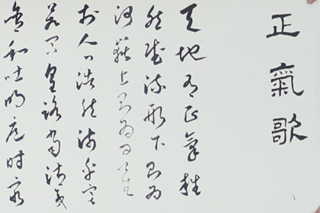 正氣歌
天地有正氣雜
然賦流形下則為
河嶽上則為日星
於人曰浩然沛乎塞
蒼冥皇路當清夷
含和吐明庭時窮